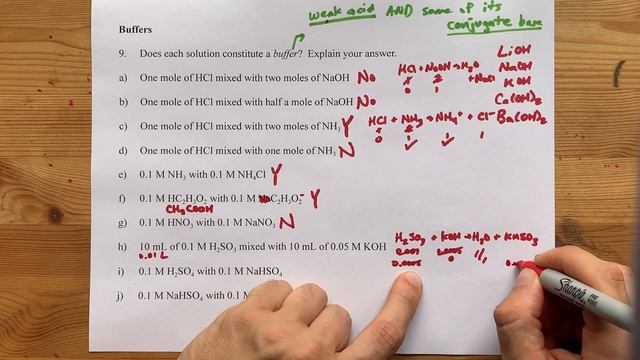 weak acid AND some of its
conjugate base
Buffers
9. Does each solution constitute a buffer? Explain your answer.
a) One mole of HCl mixed with two moles of NaOH No
HCl + NaOH → H₂O + NaCl
b) One mole of HCl mixed with half a mole of NaOH No
c) One mole of HCl mixed with two moles of NH₃ Y
HCl + NH₃ → NH₄⁺ + Cl⁻
d) One mole of HCl mixed with one mole of NH₃ N
LiOH
NaOH
KOH
Ca(OH)₂
Ba(OH)₂
e) 0.1 M NH₃ with 0.1 M NH₄Cl Y
f) 0.1 M HC₂H₃O₂ with 0.1 M C₂H₃O₂⁻ Y
CH₃COOH
g) 0.1 M HNO₃ with 0.1 M NaNO₃ N
h) 10 mL of 0.1 M H₂SO₃ mixed with 10 mL of 0.05 M KOH
0.01 L
H₂SO₃ + KOH → H₂O + KHSO₃
0.001 0.0005
0.0005 0
i) 0.1 M H₂SO₄ with 0.1 M NaHSO₄
j) 0.1 M NaHSO₄ with 0.1 M
Sharpie